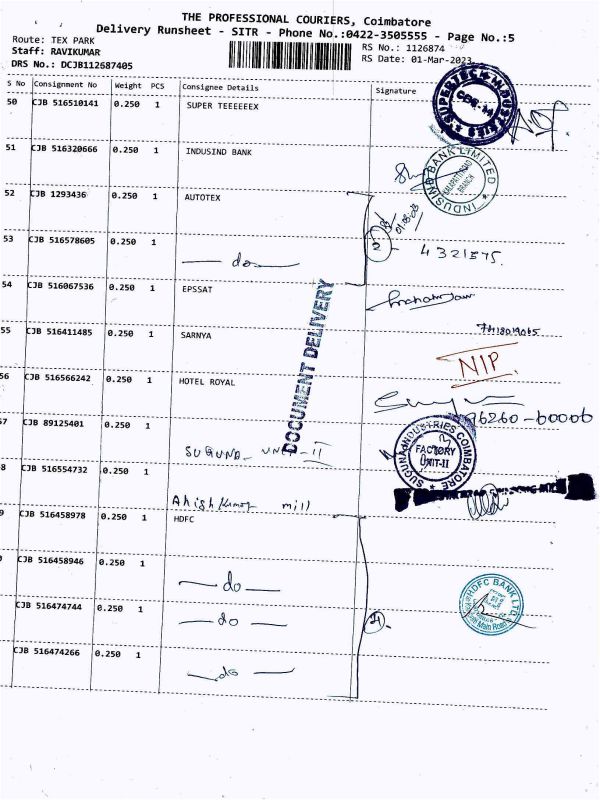 THE PROFESSIONAL COURIERS, Coimbatore
Delivery Runsheet - SITR - Phone No.:0422-3505555 - Page No.:5
Route: TEX PARK
RS No.: 1126874
Staff: RAVIKUMAR
RS Date: 01-Mar-2023
DRS No.: DCJB112687405
S No Consignment No Weight PCS Consignee Details Signature
50 CJB 516510141 0.250 1 SUPER TEEEEEEX
SUPERTECH INDUSTRIES
51 CJB 516320666 0.250 1 INDUSIND BANK
INDUSIND BANK LIMITED
BRANCH
52 CJB 1293436 0.250 1 AUTOTEX
01.03.23
53 CJB 516578605 0.250 1 — do —
2 - 4321575.
54 CJB 516067536 0.250 1 EPSSAT
DOCUMENT DELIVERY
55 CJB 516411485 0.250 1 SARNYA
NIP.
56 CJB 516566242 0.250 1 HOTEL ROYAL
96260-60006
57 CJB 89125401 0.250 1 SUGUNA UNIT-II
SUGUNA INDUSTRIES COIMBATORE
FACTORY
UNIT-II
8 CJB 516554732 0.250 1 mill
9 CJB 516458978 0.250 1 HDFC
0 CJB 516458946 0.250 1 — do —
HDFC BANK LTD
Main Road
CJB 516474744 0.250 1 — do —
4.
CJB 516474266 0.250 1 — do —